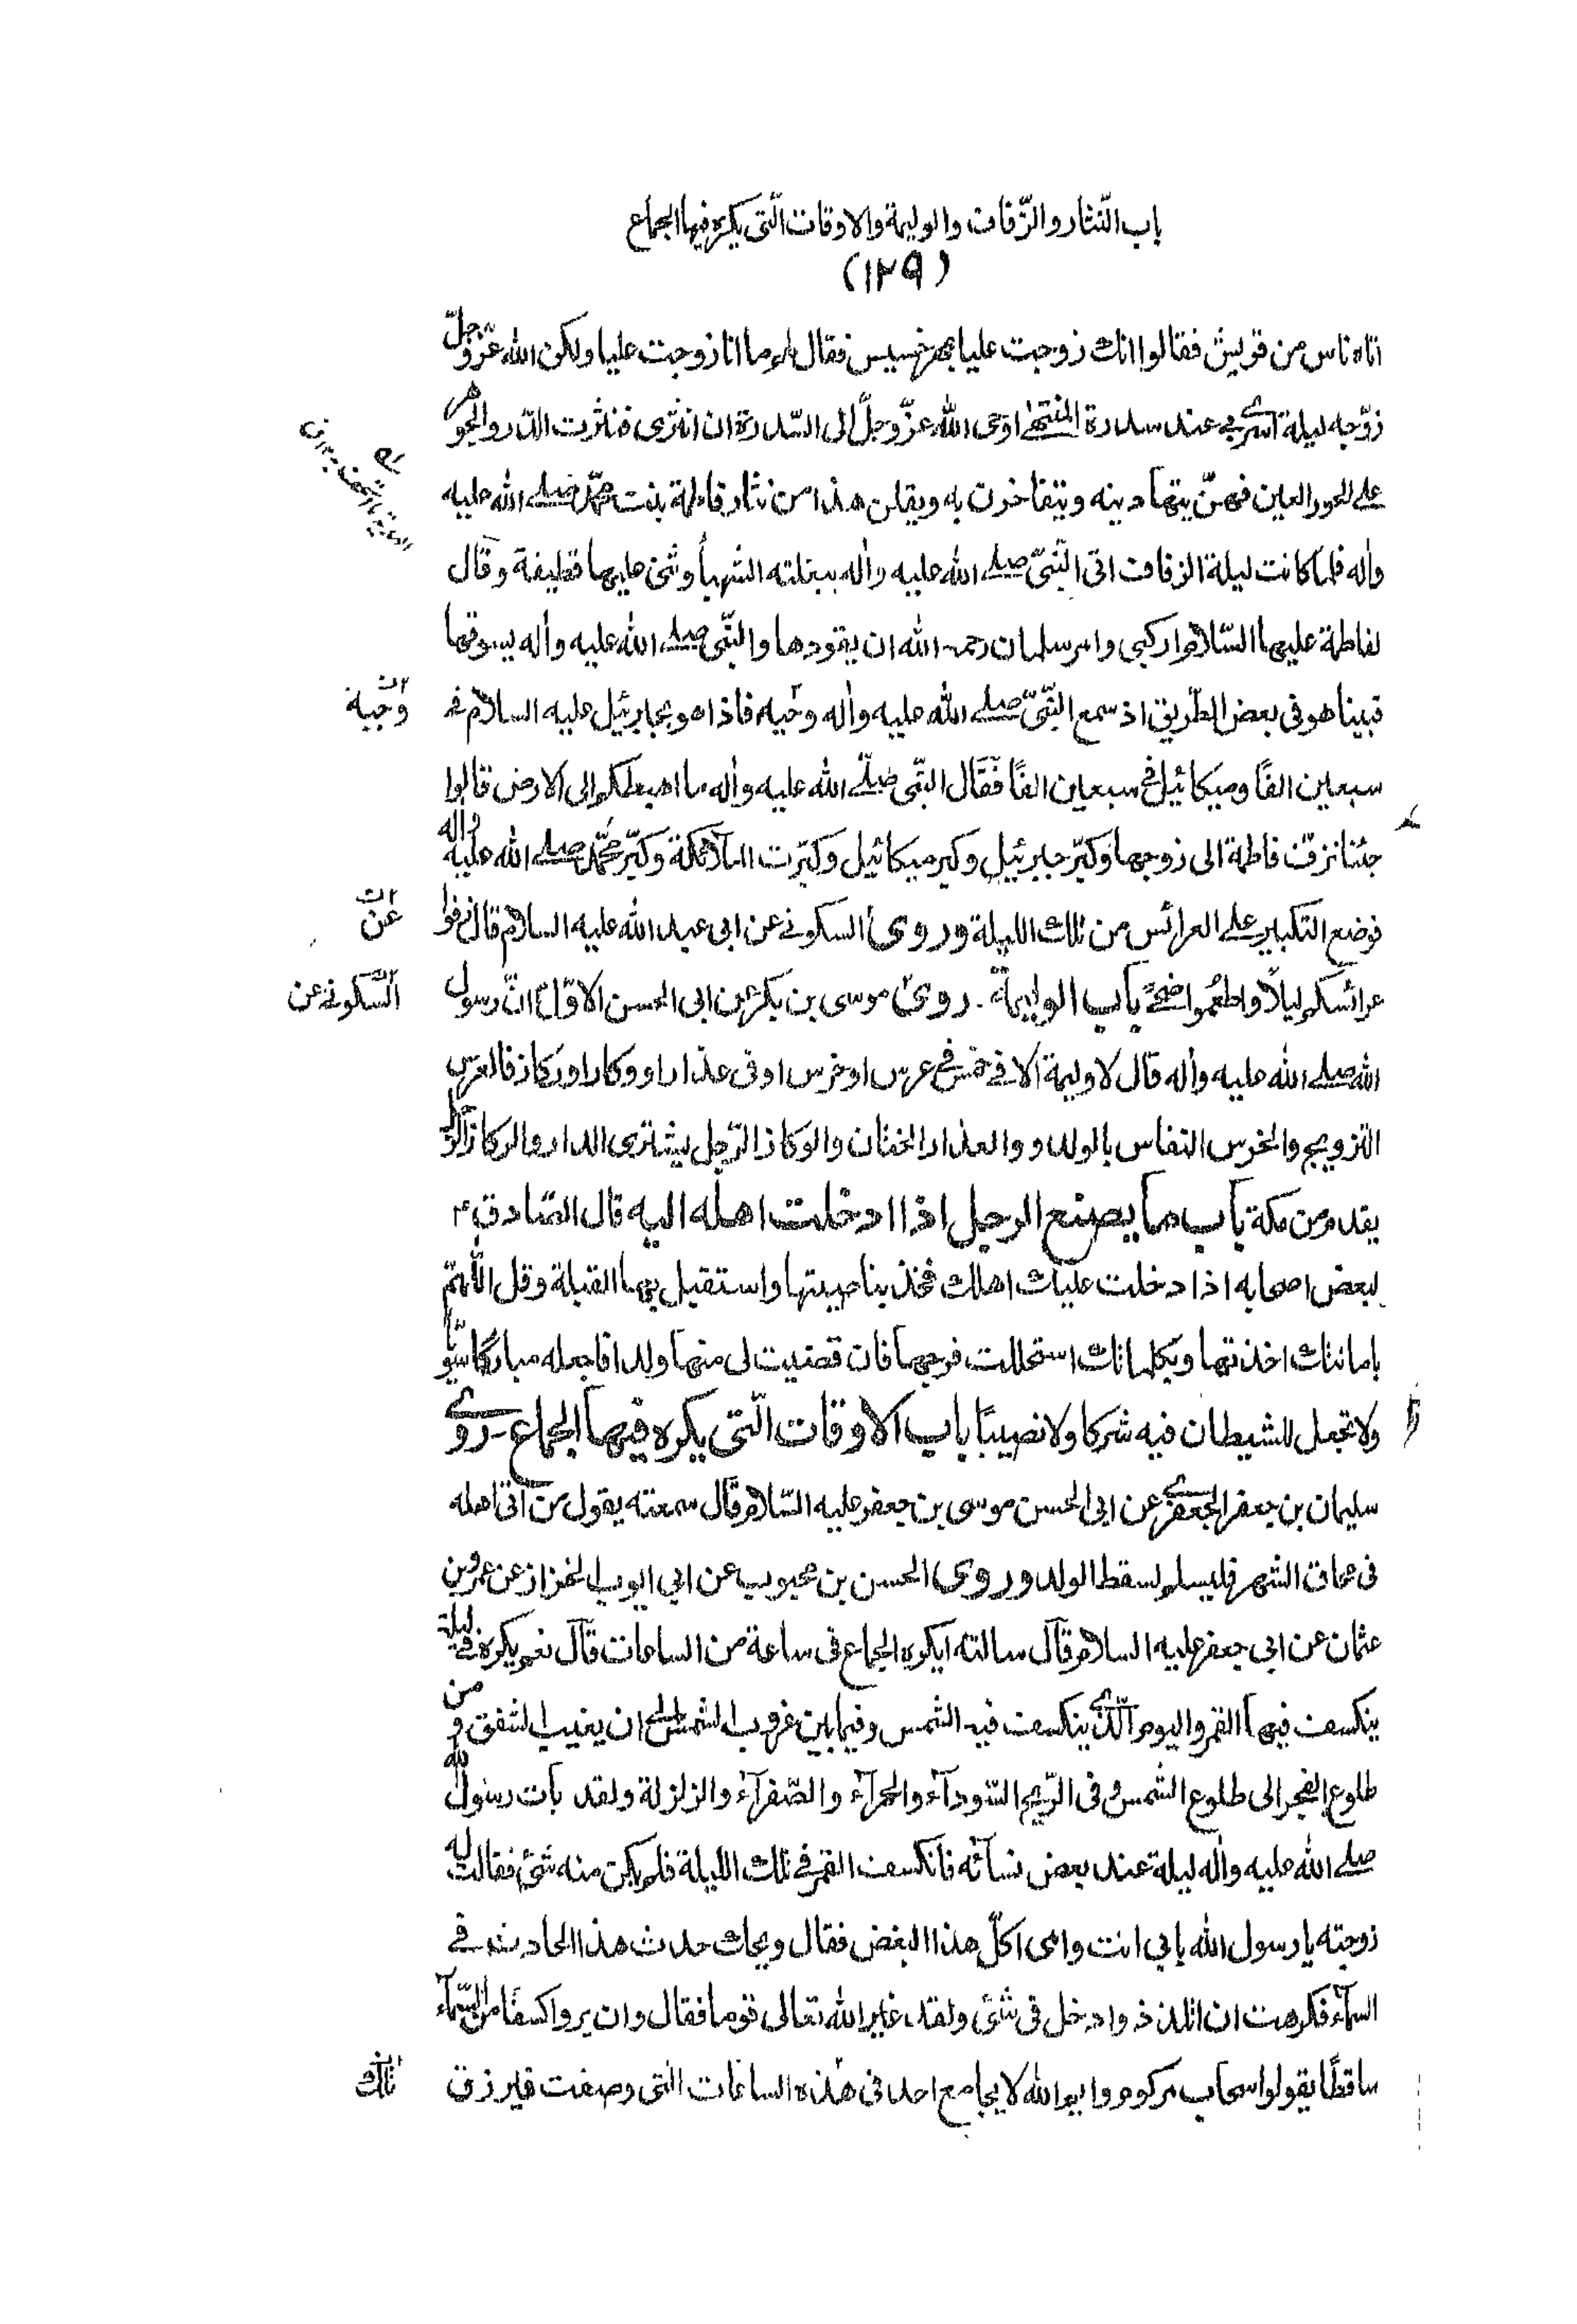 باب النّثار والزّفاف والوليمة والاوقات الّتى يكره فيها الجماع
(١٢٩)
اتاه ناس من قريش فقالوا انك زوجت عليا بمهر خسيس فقال لهم ما انا زوجت عليا ولكن الله عزّ وجلّ
زوّجه ليلة اسرى بى عند سدرة المنتهى اوحى الله عزّ وجلّ الى السّدرة ان انثرى فنثرت الدّر والجوهر
على الحور العين فهنّ يتهادينه ويتفاخرن به ويقلن هذا من نثار فاطمة بنت محمّد صلے الله عليه
واٰله فلما كانت ليلة الزفاف اتى النّبىّ صلے الله عليه واٰله ببغلته الشهبآ وثنى عليها قطيفة وقال
لفاطمة عليها السّلام اركبى وامر سلمان رحمه الله ان يقودها والنّبى صلے الله عليه واٰله يسوقها
فبينا هو فى بعض الطّريق اذ سمع النّبىّ صلے الله عليه واٰله وجبه فاذا هو بجابرئيل عليه السلام فى
وجبة
سبعين الفًا وميكائيل فى سبعين الفًا فقال النبّى صلّے الله عليه واٰله ما اهبطكم الى الارض قالوا
جئنا نزفّ فاطمة الى زوجها وكبّر جبرئيل وكبر ميكائيل وكبّرت الملآئكة وكبّر محمّد صلے الله عليه واله
فوضع التكبير على العرائس من تلك الليلة وروى السكونے عن ابى عبد الله عليه السلام قال زفوا
عن
عرائسكم ليلًا واطعموا ضحىً باب الوليمة . روى موسى بن بكر عن ابى الحسن الاوّل انّ رسول
السّكونے عن
الله صلے الله عليه واٰله قال لا وليمة الا فے خمس فے عرس او خرس او فى عذار او وكار او ركاز فالعرس
التزويج والخرس النفاس بالولد و والعذار الختان والوكاز الرّجل يشترى الدار والركاز الذى
يقدم من مكة باب ما يصنع الرجل اذا ادخلت اهله اليه قال الصّادق ع
لبعض اصحابه اذا دخلت عليك اهلك فخذ بناصيتها واستقبل بها القبلة وقل اللّهمّ
بامانتك اخذتها وبكلماتك استحللت فرجها فان قضيت لى منها ولدا فاجعله مباركًا سويّا
ولا تجعل للشيطان فيه شركا ولا نصيبًا باب الاوقات الّتى يكره فيها الجماع - روے
سليمان بن جعفر الجعفرے عن ابى الحسن موسى بن جعفر عليه السّلام قال سمعته يقول من اتى اهله
فى محاق الشهر فليسلم لسقط الولد وروى الحسن بن محبوب عن ابى ايوب الخزاز عن عمرو بن
عثمان عن ابى جعفر عليه السلام قال سالته ايكره الجماع فى ساعة من الساعات قال نعم يكره فے ليلة
ينكسف فيها القمر واليوم الّذے ينكسف فيه الشمس وفيما بين غروب الشمس الى ان يغيب الشفق ومن
طلوع الفجر الى طلوع الشمس و فى الرّيح السّودآء والحمرآء والصّفرآء والزلزلة ولقد بات رسول الله
صلے الله عليه واٰله ليلة عند بعض نسآئه فانكسف القمر فے تلك الليلة فلم يكن منه شئ فقالت له
زوجته يا رسول الله بابى انت وامى اكلّ هذا البغض فقال ويحك حدث هذا الحادث فے
السمآء فكرهت ان اتلذذ وادخل فى شئ ولقد غير الله تعالى قوما فقال وان يروا كسفًا من السّمآء
ساقطًا يقولوا سحاب مركوم وايم الله لا يجامع احد فى هذه الساعات التى وصفت فيرزق
تلك